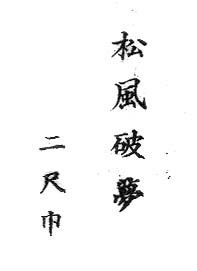 松風破夢
二尺巾